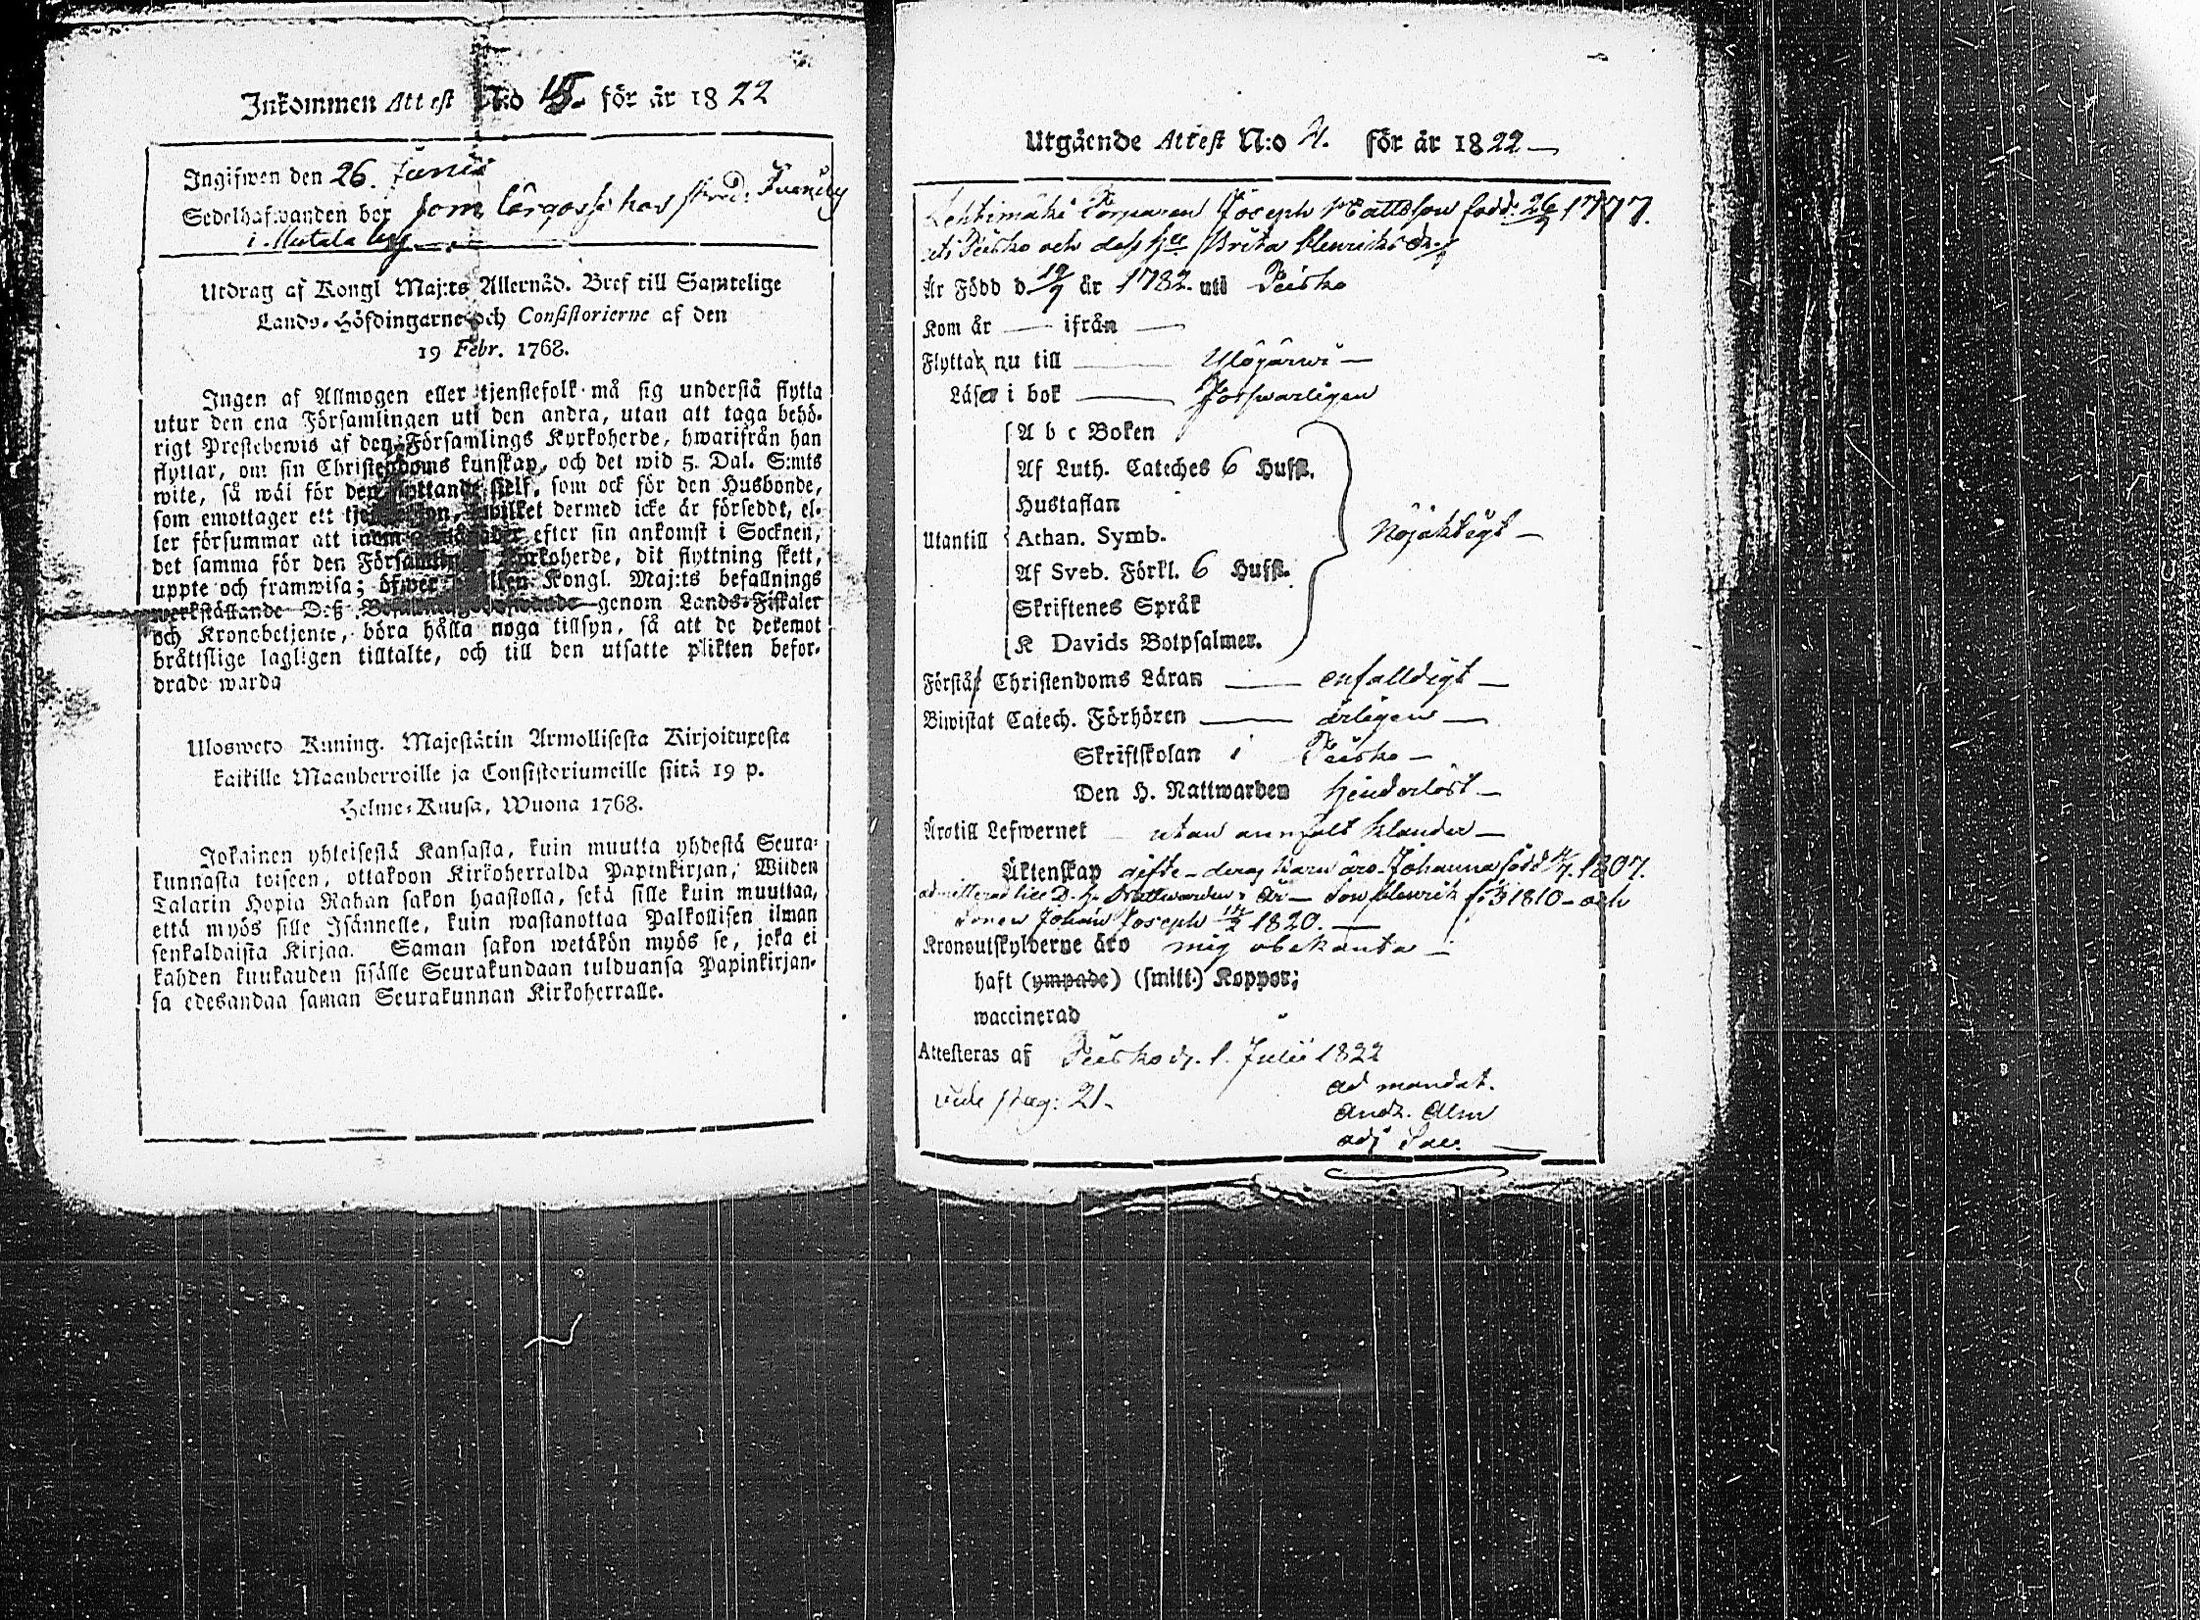 Inkommen Attest N:o 15. för år 1822
Ingifwen den 26. Junii
Sedelhafwanden bor som lärgosse hos
i Mutala by
Utdrag af Kongl Maj:ts Allernåd. Bref till Samtelige
Lands-Höfdingarne och Consistorierne af den
19 Febr. 1768.
Ingen af Allmogen eller tjenstefolk må sig understå flytta
utur den ena Församlingen uti den andra, utan att taga behö-
rigt Prestebewis af den Församlings Kyrkoherde, hwarifrån han
flyttar, om sin Christendoms kunskap, och det wid 5. Dal. S:mts
wite, så wäl för den flyttande sielf, som ock för den Husbonde,
som emottager ett hwilket dermed icke är förseddt, el-
ler försummar att inom efter sin ankomst i Socknen,
det samma för den Församlings Kyrkoherde, dit flyttning skett,
uppte och framwisa; öfwer Kongl. Maj:ts befallnings
werkställande Deß Befallningshafwande genom Lands-Fiskaler
och Kronebetjente, böra hålla noga tillsyn, så att de deremot
bråttslige lagligen tilltalte, och till den utsatte plikten befor-
drade warda
Ulosweto Kuning. Majestätin Armollisesta Kirjoituxesta
kaikille Maanherroille ja Consistoriumeille siitä 19 p.
Helme-Kuusa, Wuona 1768.
Jokainen yhteisestä Kansasta, kuin muutta yhdestä Seura-
kunnasta toiseen, ottakoon Kirkoherralda Papinkirjan, Wiiden
Talarin Hopia Rahan sakon haastolla, sekä sille kuin muuttaa,
että myös sille Isännelle, kuin wastanottaa Palkollisen ilman
senkaldaista Kirjaa. Saman sakon wetäkön myös se, joka ei
kahden kuukauden sisälle Seurakundaan tulduansa Papinkirjan-
sa edesandaa saman Seurakunnan Kirkoherralle.
Utgående Attest N:o för år 1822
Lehtimäki Torparen Joseph Mattsson född 26/7 1777.
uti Teisko och dess Hu Brita Henriksdr
Är Född d 19/7 år 1782. uti Teisko
Kom år — ifrån —
Flyttar nu till — Ylöjärwi —
Läser i bok — Förswarligen
A b c Boken
Af Luth. Cateches 6 Hufst.
Hustaflan
Utantill Athan. Symb. Nöjaktigt —
Af Sveb. Förkl. 6 Hufst.
Skriftenes Språk
K Davids Botpsalmer.
Förstår Christendoms Läran — enfalldigt —
Biwistat Catech. Förhören — årligen —
Skriftskolan i Teisko —
Den H. Nattwarden hinderlöst —
Äro till Lefwernet utan anmält klander —
Äktenskap gifte — deras barn äro Johanna född 1807.
admitterad till D. H. Nattwarden är — Son Henrik 1810 — och
sonen Johan Joseph 1820. —
Kronoutskylderne äro mig obekanta —
haft (ympade) (smitt.) Koppor;
waccinerad
Attesteras af Teisko d. 1. Julii 1822
vide pag: 21. ad mandat.
Andr. Alm
adj Sac.